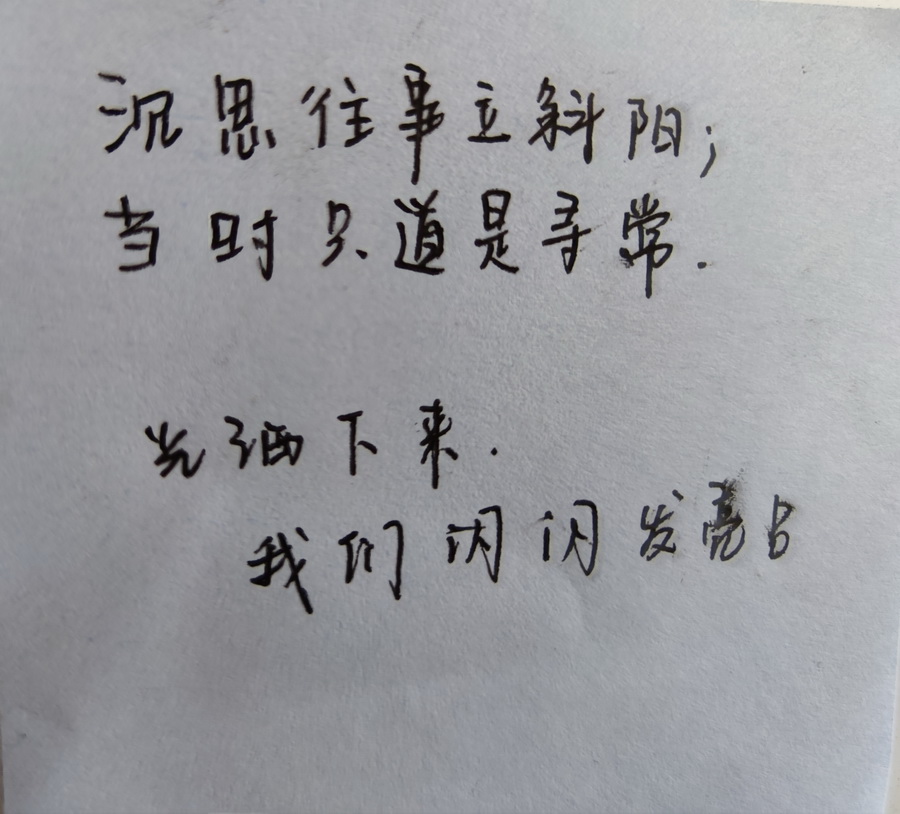 沉思往事立斜阳;
当时只道是寻常.
光洒下来.
我们闪闪发亮